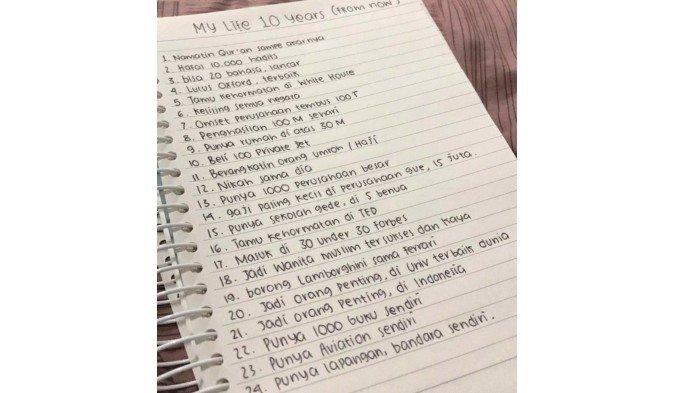 My Life 10 years (from now)
1. Namatin Qur'an sampe akarnya
2. Hafal 10.000 hadits
3. bisa 20 bahasa, lancar
4. Lulus Oxford, terbaik
5. Tamu kehormatan di White House
6. Keliling semua negara
7. Omset perusahaan tembus 100T
8. Penghasilan 100 M sehari
9. Punya rumah di atas 30 M
10. Beli 100 Private Jet
11. Berangkatin orang umroh / Haji
12. Nikah sama dia
13. Punya 1000 perusahaan besar
14. gaji paling kecil di perusahaan gue, 15 juta.
15. Punya sekolah gede, di 5 benua
16. Tamu kehormatan di TED
17. Masuk di 30 under 30 Forbes
18. Jadi Wanita muslim tersukses dan kaya
19. borong Lamborghini sama Ferrari
20. Jadi orang penting, di Univ terbaik dunia
21. Jadi orang penting, di Indonesia
22. Punya 1000 buku sendiri
23. Punya Aviation sendiri
24. Punya lapangan, bandara sendiri.